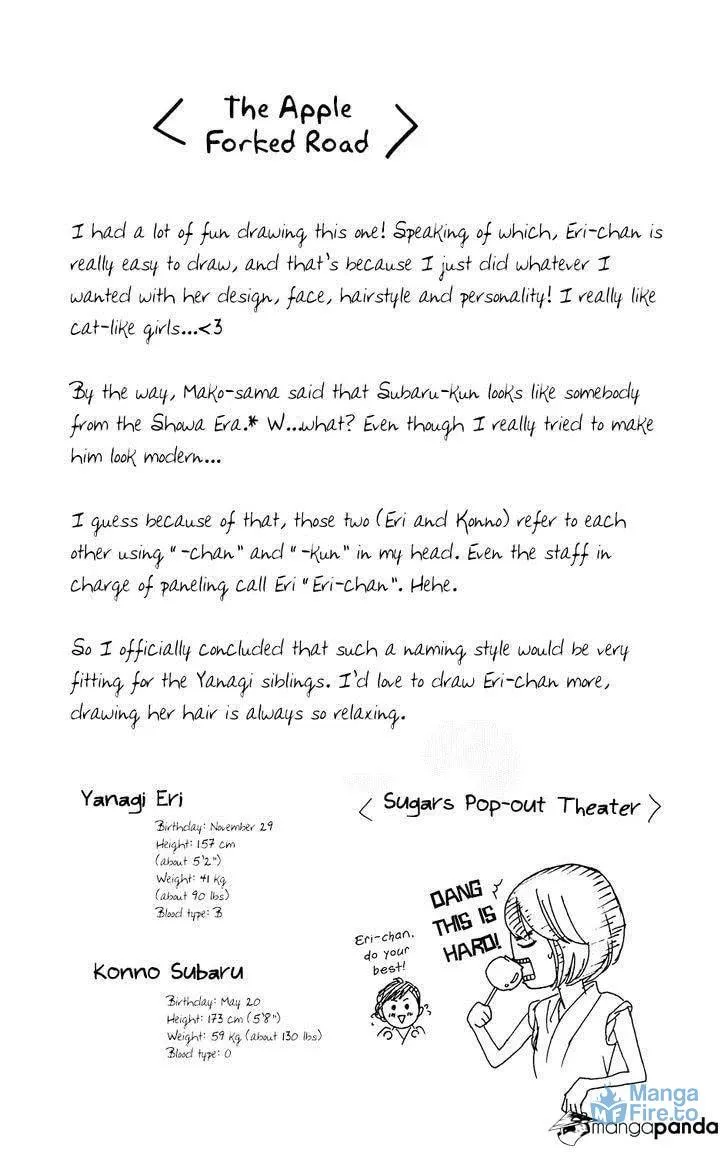 The Apple
Forked Road
I had a lot of fun drawing this one! Speaking of which, Eri-chan is
really easy to draw, and that's because I just did whatever I
wanted with her design, face, hairstyle and personality! I really like
cat-like girls...<3
By the way, Mako-sama said that Subaru-kun looks like somebody
from the Showa Era.* W...what? Even though I really tried to make
him look modern...
I guess because of that, those two (Eri and Konno) refer to each
other using "-chan" and "-kun" in my head. Even the staff in
charge of paneling call Eri "Eri-chan". Hehe.
So I officially concluded that such a naming style would be very
fitting for the Yanagi siblings. I'd love to draw Eri-chan more,
drawing her hair is always so relaxing.
Yanagi Eri
Birthday: November 29
Height: 157 cm
(about 5'2")
Weight: 41 kg
(about 90 lbs)
Blood type: B
Konno Subaru
Birthday: May 20
Height: 173 cm (5'8")
Weight: 59 kg (about 130 lbs)
Blood type: O
Sugars Pop-out Theater
DANG
THIS IS
HARD!
Eri-chan,
do your
best!
Manga
Fire.to
MF
mangapanda